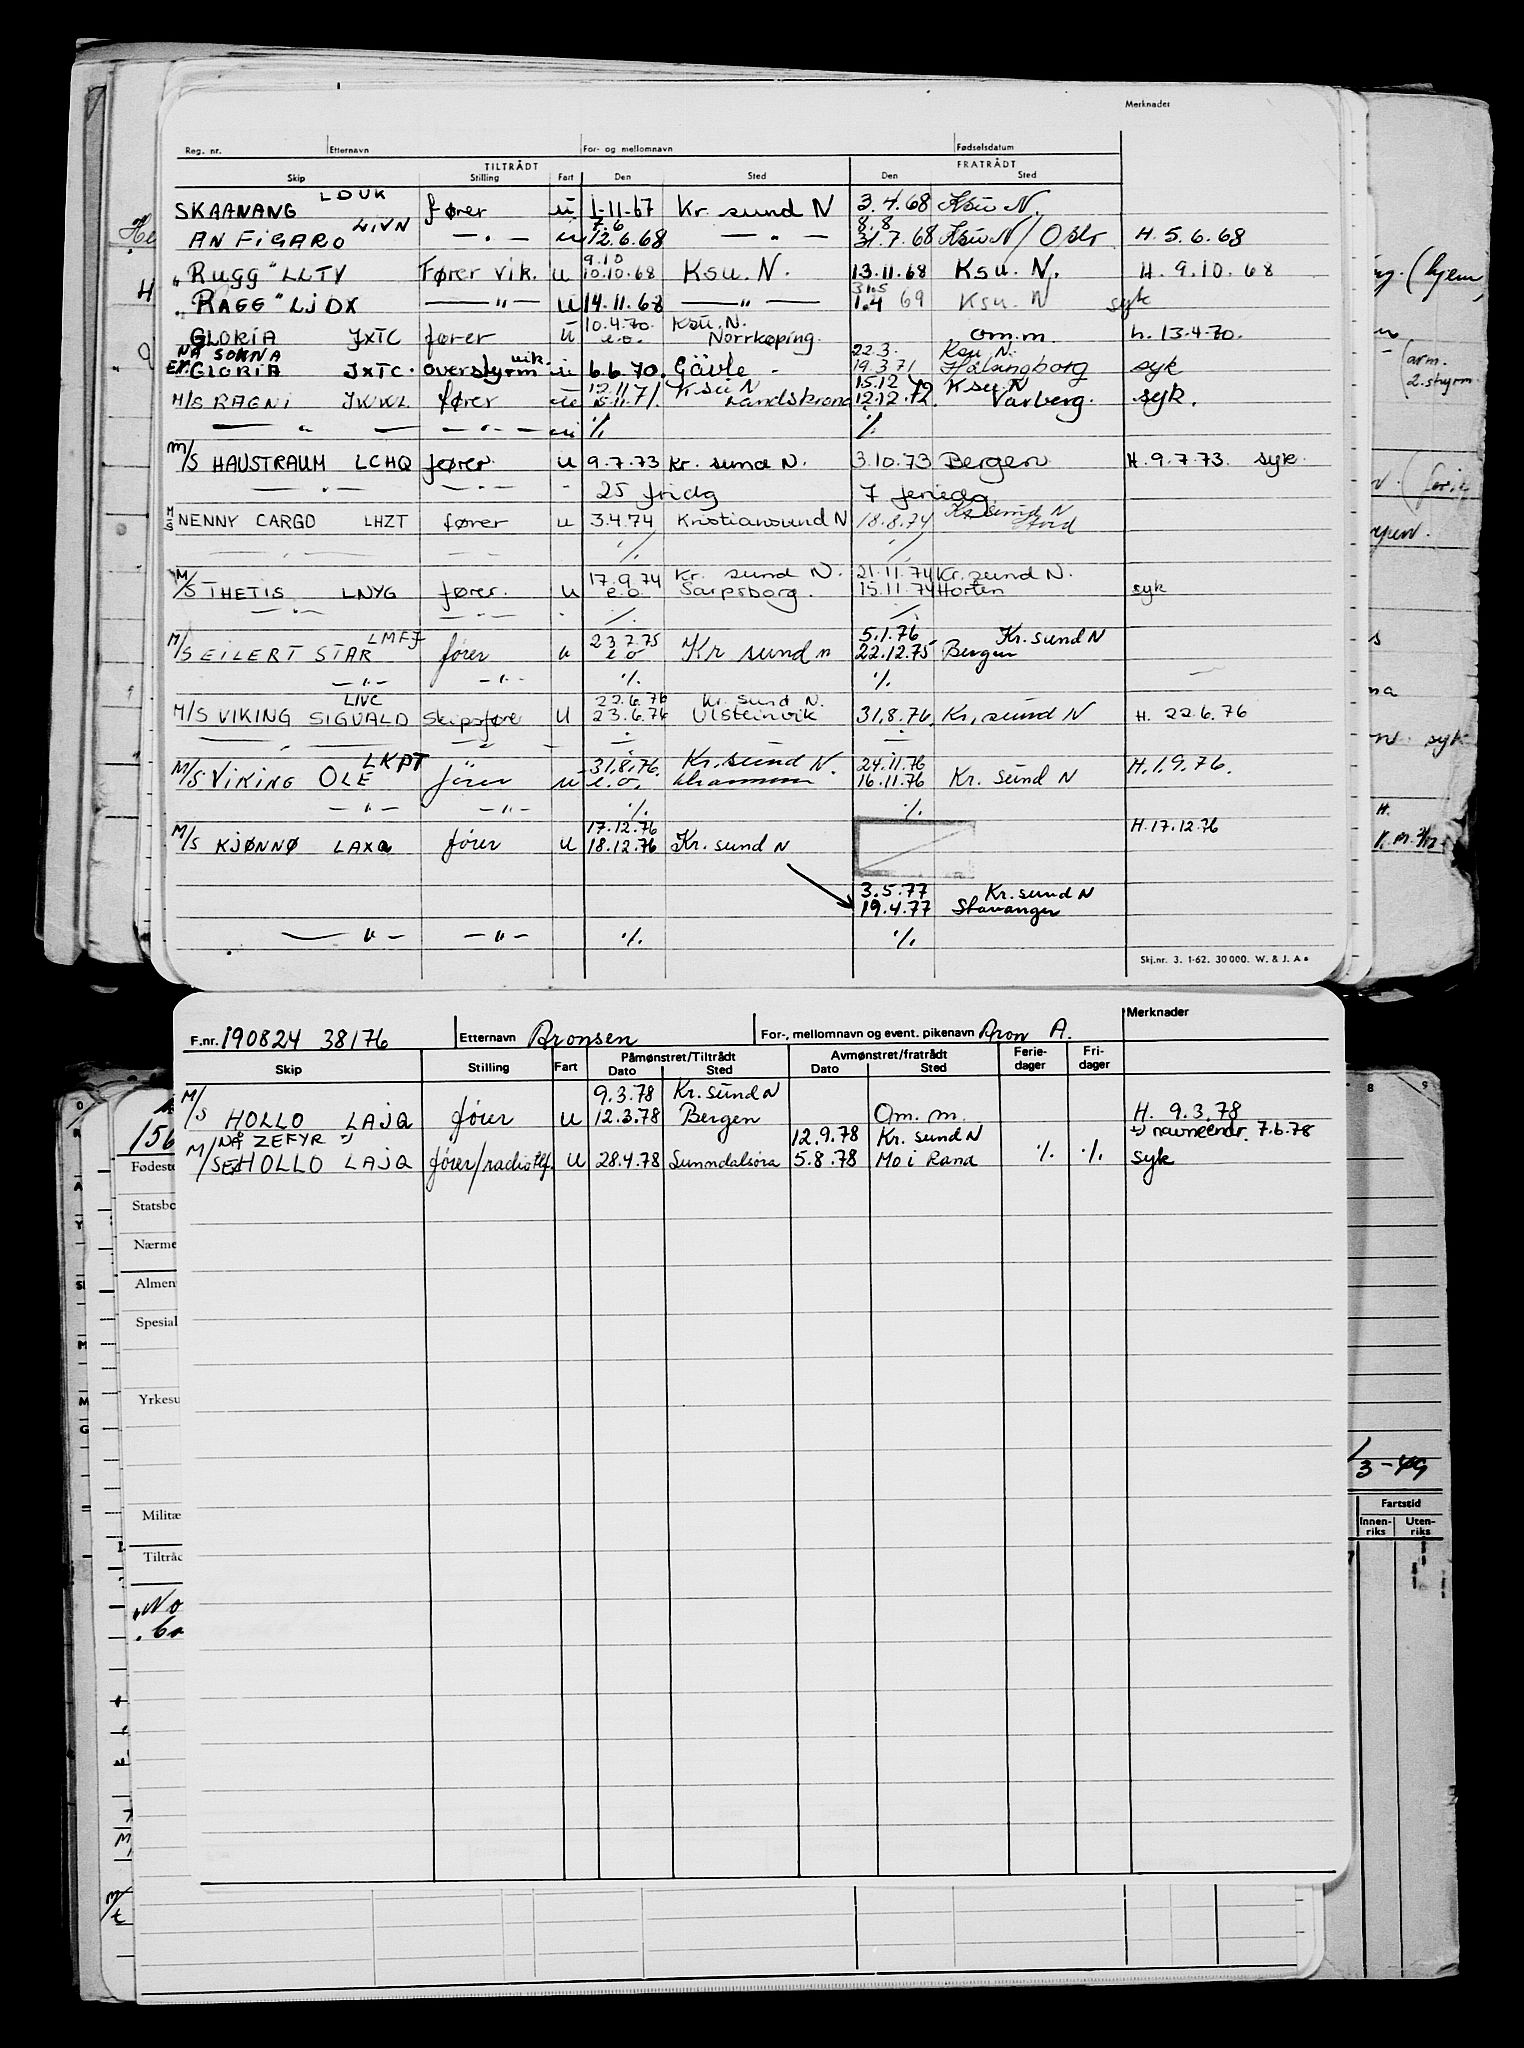 Merknader
Reg. nr. Etternavn For- og mellomnavn Fødselsdatum
TILTRÅDT FRATRÅDT
Skip Stilling Fart Den Sted Den Sted
LDUK
SKAANANG fører u 1-11-67 Kr sund N 3.4.68 Ksu N.
LIVN 7.6 8.8
AN FIGARO — " — u 12.6.68 — " — 31.7.68 Ksu N/ Oslo H. 5.6.68
9.10
"Rugg" LLTV Fører vik. u 10.10.68 Ksu. N. 13.11.68 Ksu. N. H. 9.10.68
31.5
"RAGG" LJDX — " — u 14.11.68 — " — 1.4 69 Ksu. N syk
10.4.70. Ksu. N.
GLORIA JXTC fører u e.o. Norrköping. om.m h. 13.4.70.
NÅ SOKNA vik. 22.3. Ksu N.
EX. GLORIA JXTC. overstyrm u 6.6.70. Gävle - 19.3.71 Hälsingborg syk
12.11 Ksu N 15.12 72 Ksu. N
M/S RAGNI JWKL fører u 15.11.71. Landskrona 12.12.72. Varberg. syk.
— " — — " — u ٪ ٪
M/S HAUSTRAUM LCHQ fører u 9.7.73 Kr. sund N. 3.10.73 Bergen H. 9.7.73. syk.
— " — — " — 25 fridg 7 feriedg
Kr sund N
M/S NENNY CARGO LHZT fører u 3.4.74 Kristiansund N 18.8.74 Stord
— " — — " — ٪ ٪
17.9.74 Kr. sund N. 21.11.74 Kr. sund N.
M/S THETIS LNYG fører. u e.o. Sarpsborg. 15.11.74 Horten syk
— " — — " — ٪ ٪
LMFJ 23.7.75 5.1.76 Kr. sund N
M/S EILERT STAR fører u e o Kr sund n 22.12.75 Bergen
— " — — " — ٪ ٪
LIVC 22.6.76 Kr. sund N.
M/S VIKING SIGVALD Skipsfører u 23.6.76 Ulsteinvik 31.8.76. Kr. sund N H. 22.6.76
— " — — " —
LKPT 31.8.76. Kr. sund N. 24.11.76 H.1.9.76.
M/S VIKING OLE fører u e.o. 16.11.76 Kr. sund N
— " — — " — ٪ ٪
17.12.76 H.17.12.76
M/S KJØNNØ LAXQ fører u 18.12.76 Kr. sund N
3.5.77 Kr. sund N
19.4.77 Stavanger
— " — — " — ٪ ٪
Skj.nr. 3. 1-62. 30 000. W. & J. A.
Merknader
F.nr. 190824 38176 Etternavn Aronsen For-, mellomnavn og event. pikenavn Aron A.
Påmønstret/Tiltrådt Avmønstret/fratrådt Ferie- Fri-
Skip Stilling Fart Dato Sted Dato Sted dager dager
9.3.78 Kr. sund N
M/S HOLLO LAJQ fører u 12.3.78 Bergen Om. m. H. 9.3.78
NÅ ZEFYR -) 12.9.78 Kr. sund N -) navneendr. 7.6.78
M/S EX HOLLO LAJQ fører/radiotlf. u 28.4.78 Sunndalsøra 5.8.78 Mo i Rana ٪ ٪ syk
(hjem,
(arm.
2. styrm
syk
156
Fødeste
Statsbo
Nærme
Almen
Spesial
Yrkesu
Militæ
Tiltråd
"No
3-49
Fartstid
Innen- Uten-
riks riks